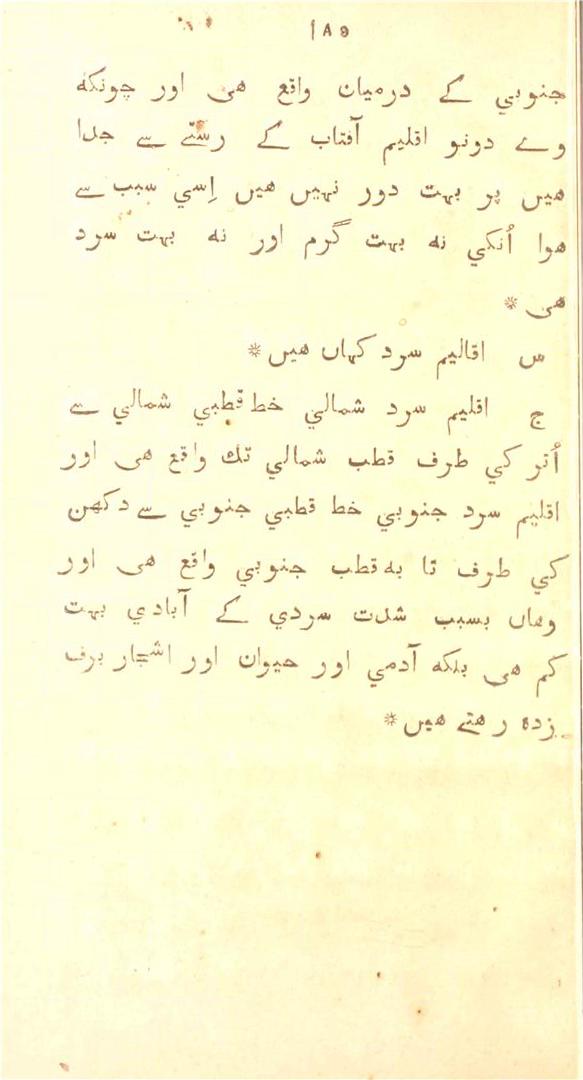 ١٨٩
جنوبي کے درمیان واقع هی اور چونکه
وے دونو اقلیم آفتاب کے رستے سے جدا
هیں پر بہت دور نہیں هیں اِسي سبب سے
هوا اُنکي نه بہت گرم اور نه بہت سرد
هی *
س اقالیم سرد کہاں هیں *
ج اقلیم سرد شمالي خط قطبي شمالي سے
اُتر کي طرف قطب شمالي تك واقع هی اور
اقلیم سرد جنوبي خط قطبي جنوبي سے دکھن
کي طرف تا به قطب جنوبي واقع هی اور
وهاں بسبب شدت سردي کے آبادي بہت
کم هی بلکه آدمي اور حیوان اور اشجار برف
زده رهتے هیں *